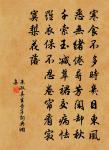 寒食不多時幾日東風
惡無緒倦尋芳閒卻秋
千索玉減翠裙交病怯
羅衣薄不忍卷簾看寂
寞梨花落
朱淑真生查子